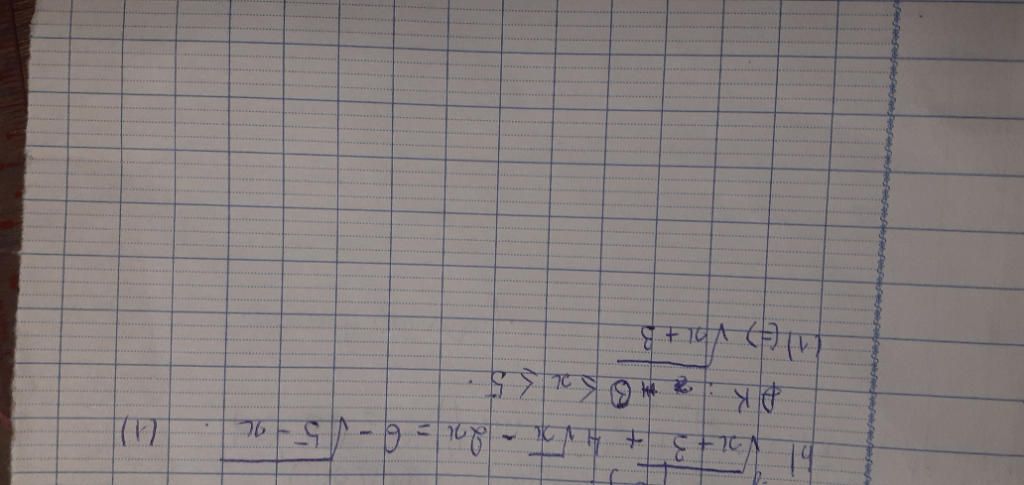 b) √x+3 + 4√x - 2x = 6 - √5-x (1)
ĐK: 0 ≤ x ≤ 5.
(1) (=) √x+3